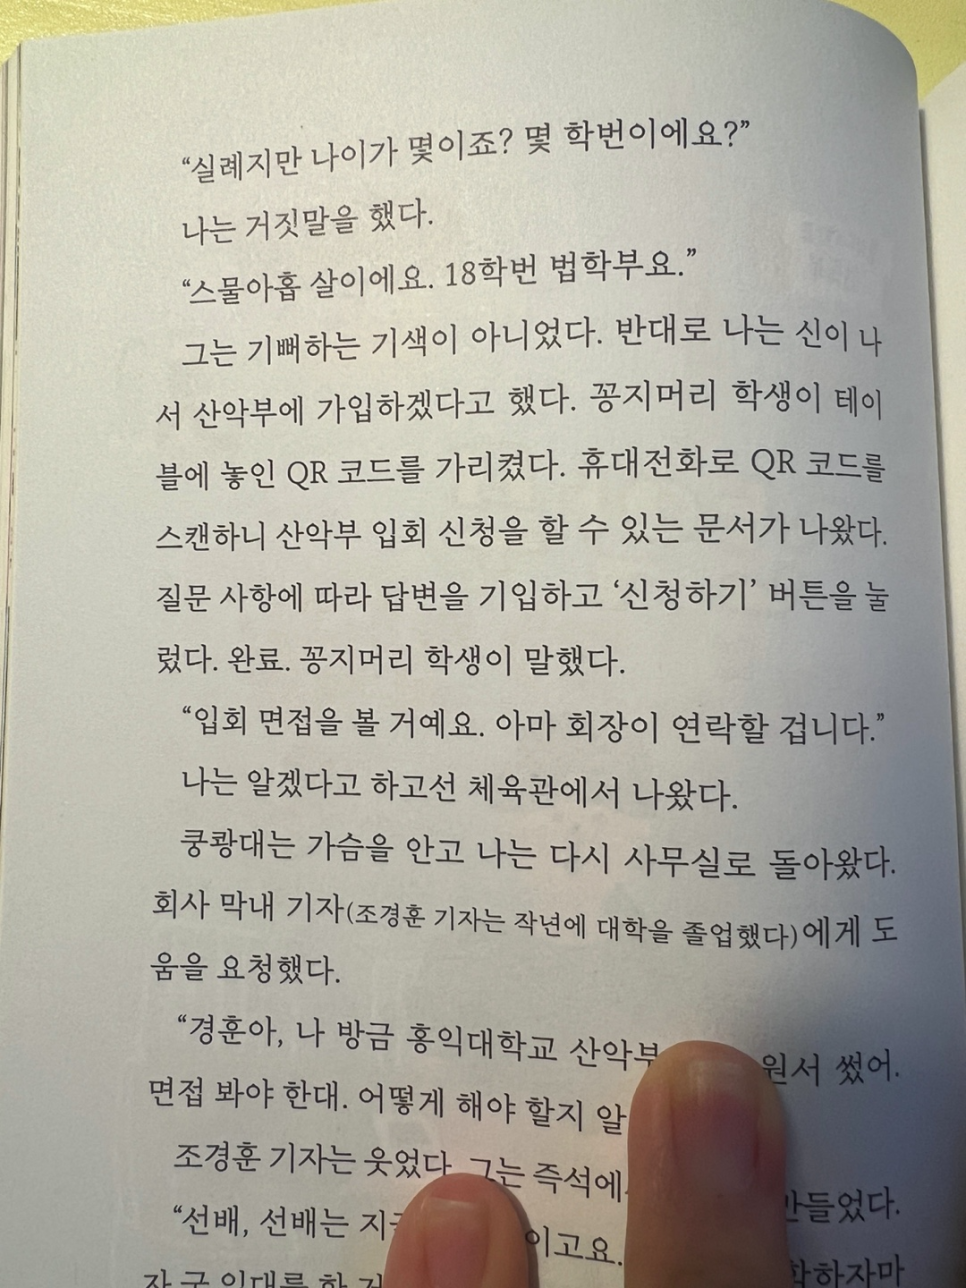 “실례지만 나이가 몇이죠? 몇 학번이에요?”
나는 거짓말을 했다.
“스물아홉 살이에요. 18학번 법학부요.”
그는 기뻐하는 기색이 아니었다. 반대로 나는 신이 나
서 산악부에 가입하겠다고 했다. 꽁지머리 학생이 테이
블에 놓인 QR 코드를 가리켰다. 휴대전화로 QR 코드를
스캔하니 산악부 입회 신청을 할 수 있는 문서가 나왔다.
질문 사항에 따라 답변을 기입하고 ‘신청하기’ 버튼을 눌
렀다. 완료. 꽁지머리 학생이 말했다.
“입회 면접을 볼 거예요. 아마 회장이 연락할 겁니다.”
나는 알겠다고 하고선 체육관에서 나왔다.
쿵쾅대는 가슴을 안고 나는 다시 사무실로 돌아왔다.
회사 막내 기자(조경훈 기자는 작년에 대학을 졸업했다)에게 도
움을 요청했다.
“경훈아, 나 방금 홍익대학교 산악부 원서 썼어.
면접 봐야 한대. 어떻게 해야 할지 알
조경훈 기자는 웃었다. 그는 즉석에서 만들었다.
“선배, 선배는 이고요.